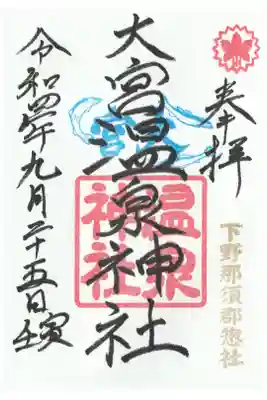 奉拝
下野那須郡惣社
大宮温泉神社
温泉
神社
令和四年九月二十五日壬寅